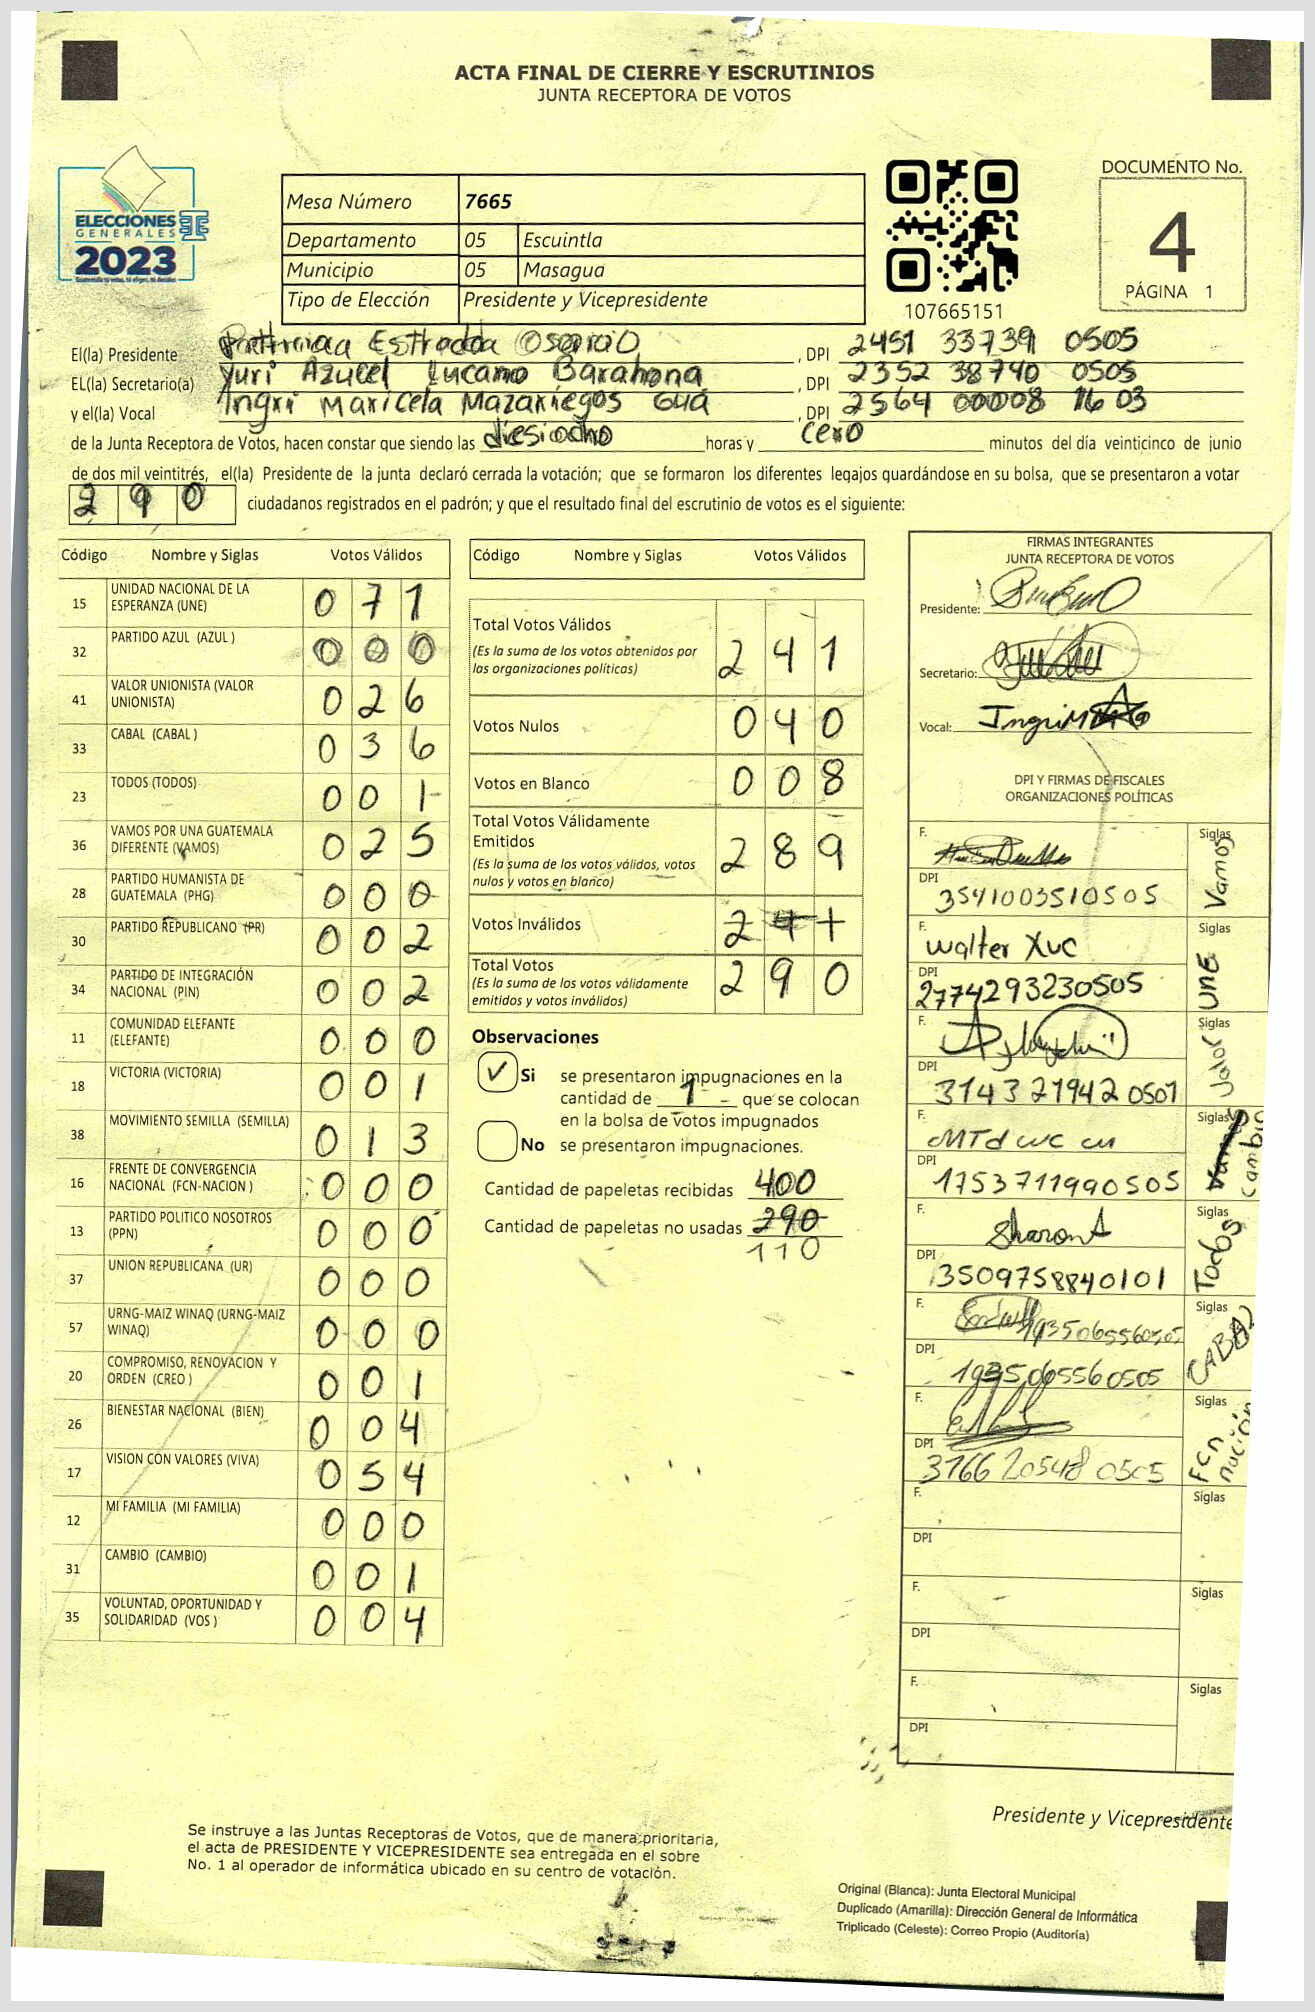 ACTA FINAL DE CIERRE Y ESCRUTINIOS
JUNTA RECEPTORA DE VOTOS
ELECCIONES
GENERALES
2023
Mesa Número 7665
Departamento 05 Escuintla
Municipio 05 Masagua
Tipo de Elección Presidente y Vicepresidente
107665151
DOCUMENTO No.
4
PÁGINA 1
El(la) Presidente Estrada Osorio, DPI 2451 33739 0505
EL(la) Secretario(a) Yuri Azucel Lucano Barahona, DPI 2352 38740 0505
y el(la) Vocal Ingri Maricela Mazariegos Guá, DPI 2564 00008 1603
de la Junta Receptora de Votos, hacen constar que siendo las diesiocho horas y cero minutos del día veinticinco de junio
de dos mil veintitrés, el(la) Presidente de la junta declaró cerrada la votación; que se formaron los diferentes legajos guardándose en su bolsa, que se presentaron a votar
290 ciudadanos registrados en el padrón; y que el resultado final del escrutinio de votos es el siguiente:
Código Nombre y Siglas Votos Válidos
15 UNIDAD NACIONAL DE LA ESPERANZA (UNE) 071
32 PARTIDO AZUL (AZUL ) 000
41 VALOR UNIONISTA (VALOR UNIONISTA) 026
33 CABAL (CABAL ) 036
23 TODOS (TODOS) 001
36 VAMOS POR UNA GUATEMALA DIFERENTE (VAMOS) 025
28 PARTIDO HUMANISTA DE GUATEMALA (PHG) 000
30 PARTIDO REPUBLICANO (PR) 002
34 PARTIDO DE INTEGRACIÓN NACIONAL (PIN) 002
11 COMUNIDAD ELEFANTE (ELEFANTE) 000
18 VICTORIA (VICTORIA) 001
38 MOVIMIENTO SEMILLA (SEMILLA) 013
16 FRENTE DE CONVERGENCIA NACIONAL (FCN-NACION ) 000
13 PARTIDO POLITICO NOSOTROS (PPN) 000
37 UNION REPUBLICANA (UR) 000
57 URNG-MAIZ WINAQ (URNG-MAIZ WINAQ) 000
20 COMPROMISO, RENOVACION Y ORDEN (CREO ) 001
26 BIENESTAR NACIONAL (BIEN) 004
17 VISION CON VALORES (VIVA) 054
12 MI FAMILIA (MI FAMILIA) 000
31 CAMBIO (CAMBIO) 001
35 VOLUNTAD, OPORTUNIDAD Y SOLIDARIDAD (VOS ) 004
Código Nombre y Siglas Votos Válidos
Total Votos Válidos 241
(Es la suma de los votos obtenidos por
las organizaciones políticas)
Votos Nulos 040
Votos en Blanco 008
Total Votos Válidamente
Emitidos 289
(Es la suma de los votos válidos, votos
nulos y votos en blanco)
Votos Inválidos
Total Votos 290
(Es la suma de los votos válidamente
emitidos y votos inválidos)
Observaciones
✓ Si se presentaron impugnaciones en la
cantidad de 1 que se colocan
en la bolsa de votos impugnados
No se presentaron impugnaciones.
Cantidad de papeletas recibidas 400
Cantidad de papeletas no usadas 290
110
FIRMAS INTEGRANTES
JUNTA RECEPTORA DE VOTOS
Presidente:
Secretario:
Vocal: Ingri
DPI Y FIRMAS DE FISCALES
ORGANIZACIONES POLÍTICAS
F. Siglas Vamos
DPI 3541003510505
F. Walter Xuc Siglas UNE
DPI 2774293230505
F. Siglas Valor
DPI 3143 21942 0501
F. Siglas Vamos Cambio
DPI 1753711990505
F. Sharon A Siglas Todos
DPI 3509758840101
F. 1935065560505 Siglas CABAL
DPI 1935065560505
F. Siglas Fcn nación
DPI 3766 20548 0505
F. Siglas
DPI
F. Siglas
DPI
F. Siglas
DPI
Presidente y Vicepresidente
Se instruye a las Juntas Receptoras de Votos, que de manera prioritaria,
el acta de PRESIDENTE Y VICEPRESIDENTE sea entregada en el sobre
No. 1 al operador de informática ubicado en su centro de votación.
Original (Blanca): Junta Electoral Municipal
Duplicado (Amarilla): Dirección General de Informática
Triplicado (Celeste): Correo Propio (Auditoría)